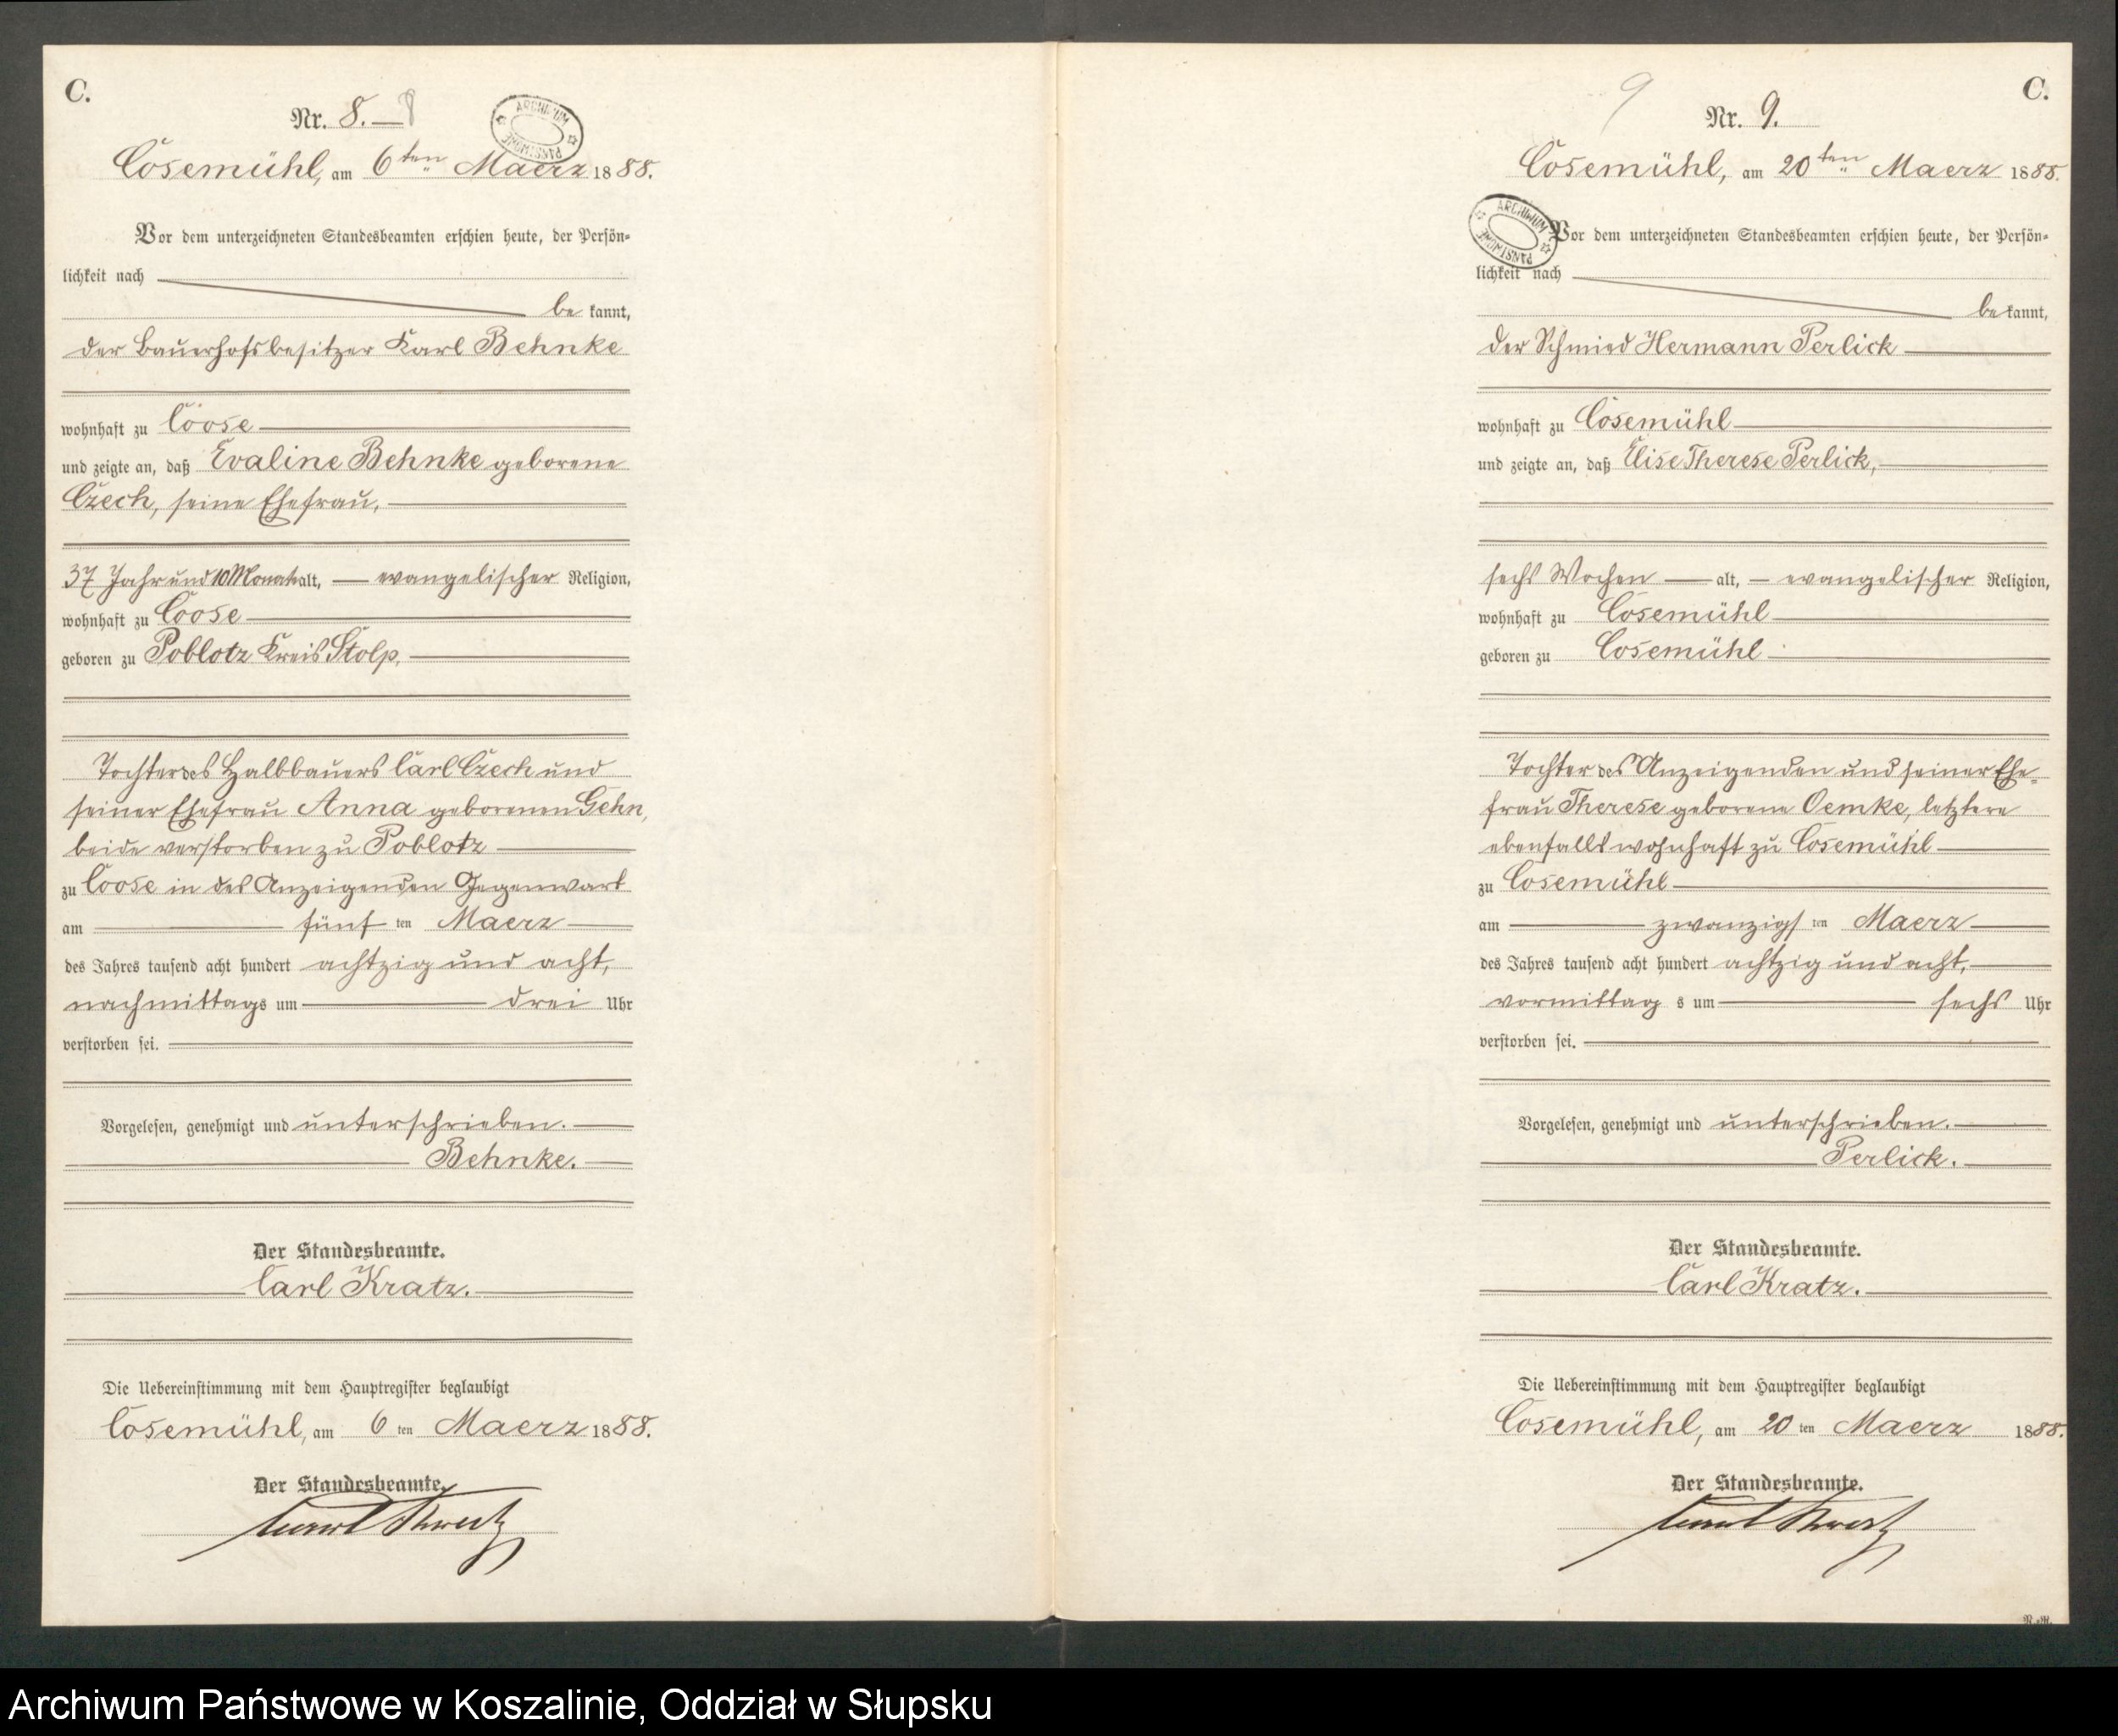 C.
Nr. 8. — 8
ARCHIWUM PAŃSTWOWE
Cosemühl, am 6ten Maerz 1888.
Vor dem unterzeichneten Standesbeamten erschien heute, der Persön-
lichkeit nach
bekannt,
der Bauerhofsbesitzer Karl Behnke
wohnhaft zu Coose
und zeigte an, daß Evaline Behnke geborene
Czech, seine Ehefrau,
37 Jahr und 10 Monat alt, evangelischer Religion,
wohnhaft zu Coose
geboren zu Poblotz Kreis Stolp,
Tochter des Halbbauers Carl Czech und
seiner Ehefrau Anna geborenen Gehn,
beide verstorben zu Poblotz
zu Coose in des Anzeigenden Gegenwart
am fünf ten Maerz
des Jahres tausend acht hundert achtzig und acht,
nachmittags um drei Uhr
verstorben sei.
Vorgelesen, genehmigt und unterschrieben.
Behnke.
Der Standesbeamte.
Carl Kratz.
Die Uebereinstimmung mit dem Hauptregister beglaubigt
Cosemühl, am 6 ten Maerz 1888.
Der Standesbeamte.
Carl Kratz
9
C.
Nr. 9.
Cosemühl, am 20ten Maerz 1888.
ARCHIWUM PAŃSTWOWE
Vor dem unterzeichneten Standesbeamten erschien heute, der Persön-
lichkeit nach
bekannt,
der Schmied Hermann Perlick
wohnhaft zu Cosemühl
und zeigte an, daß Elise Therese Perlick,
sechs Wochen alt, evangelischer Religion,
wohnhaft zu Cosemühl
geboren zu Cosemühl
Tochter des Anzeigenden und seiner Ehe-
frau Therese geborene Oemke, letztere
ebenfalls wohnhaft zu Cosemühl
zu Cosemühl
am zwanzigs ten Maerz
des Jahres tausend acht hundert achtzig und acht,
vormittag s um sechs Uhr
verstorben sei.
Vorgelesen, genehmigt und unterschrieben.
Perlick.
Der Standesbeamte.
Carl Kratz.
Die Uebereinstimmung mit dem Hauptregister beglaubigt
Cosemühl, am 20 ten Maerz 1888.
Der Standesbeamte.
Carl Kratz
Archiwum Państwowe w Koszalinie, Oddział w Słupsku